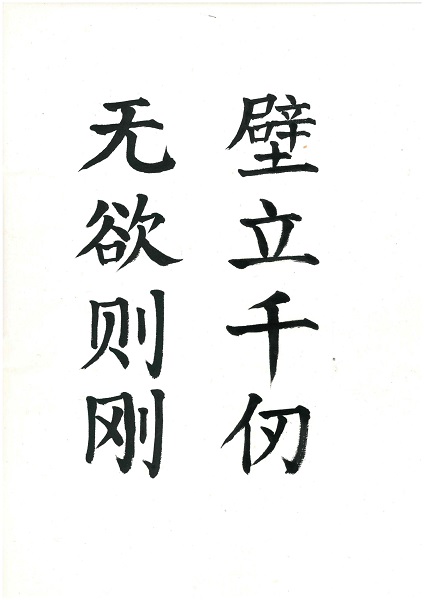 壁立千仞
无欲则刚